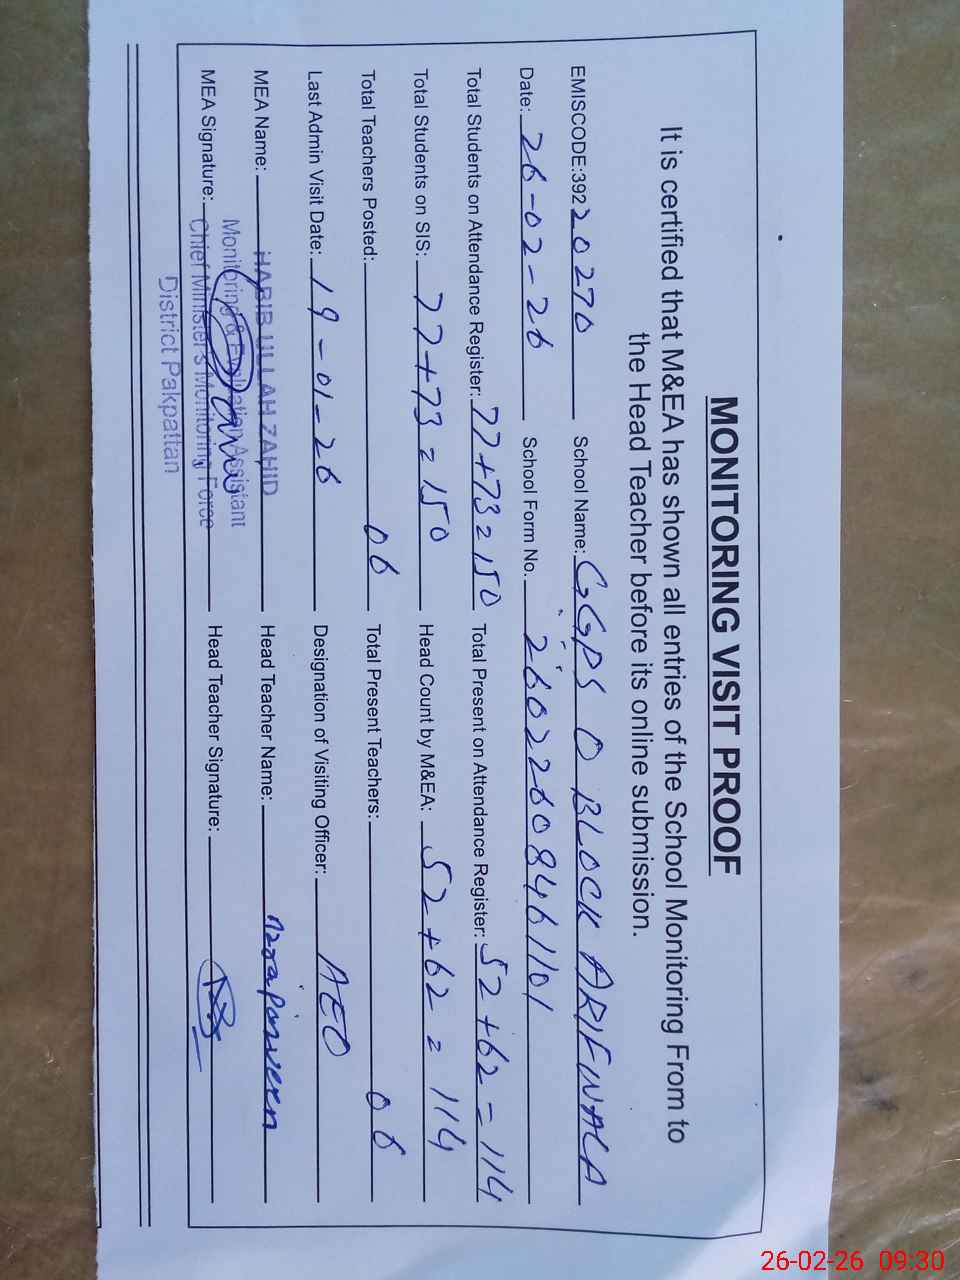 MONITORING VISIT PROOF
It is certified that M&EA has shown all entries of the School Monitoring From to
the Head Teacher before its online submission.
EMISCODE:39220270 School Name: GGPS O BLOCK ARIFWALA
Date: 26-02-26 School Form No. 26022608461101
Total Students on Attendance Register: 77+73=150 Total Present on Attendance Register: 52+62=114
Total Students on SIS: 77+73=150 Head Count by M&EA: 52+62=114
Total Teachers Posted: 06 Total Present Teachers: 06
Last Admin Visit Date: 19-01-26 Designation of Visiting Officer: AEO
MEA Name: HABIB ULLAH ZAHID Head Teacher Name: Azra Parveen
Monitoring & Evaluation Assistant
MEA Signature: Chief Minister's Monitoring Force Head Teacher Signature:
District Pakpattan
26-02-26 09:30